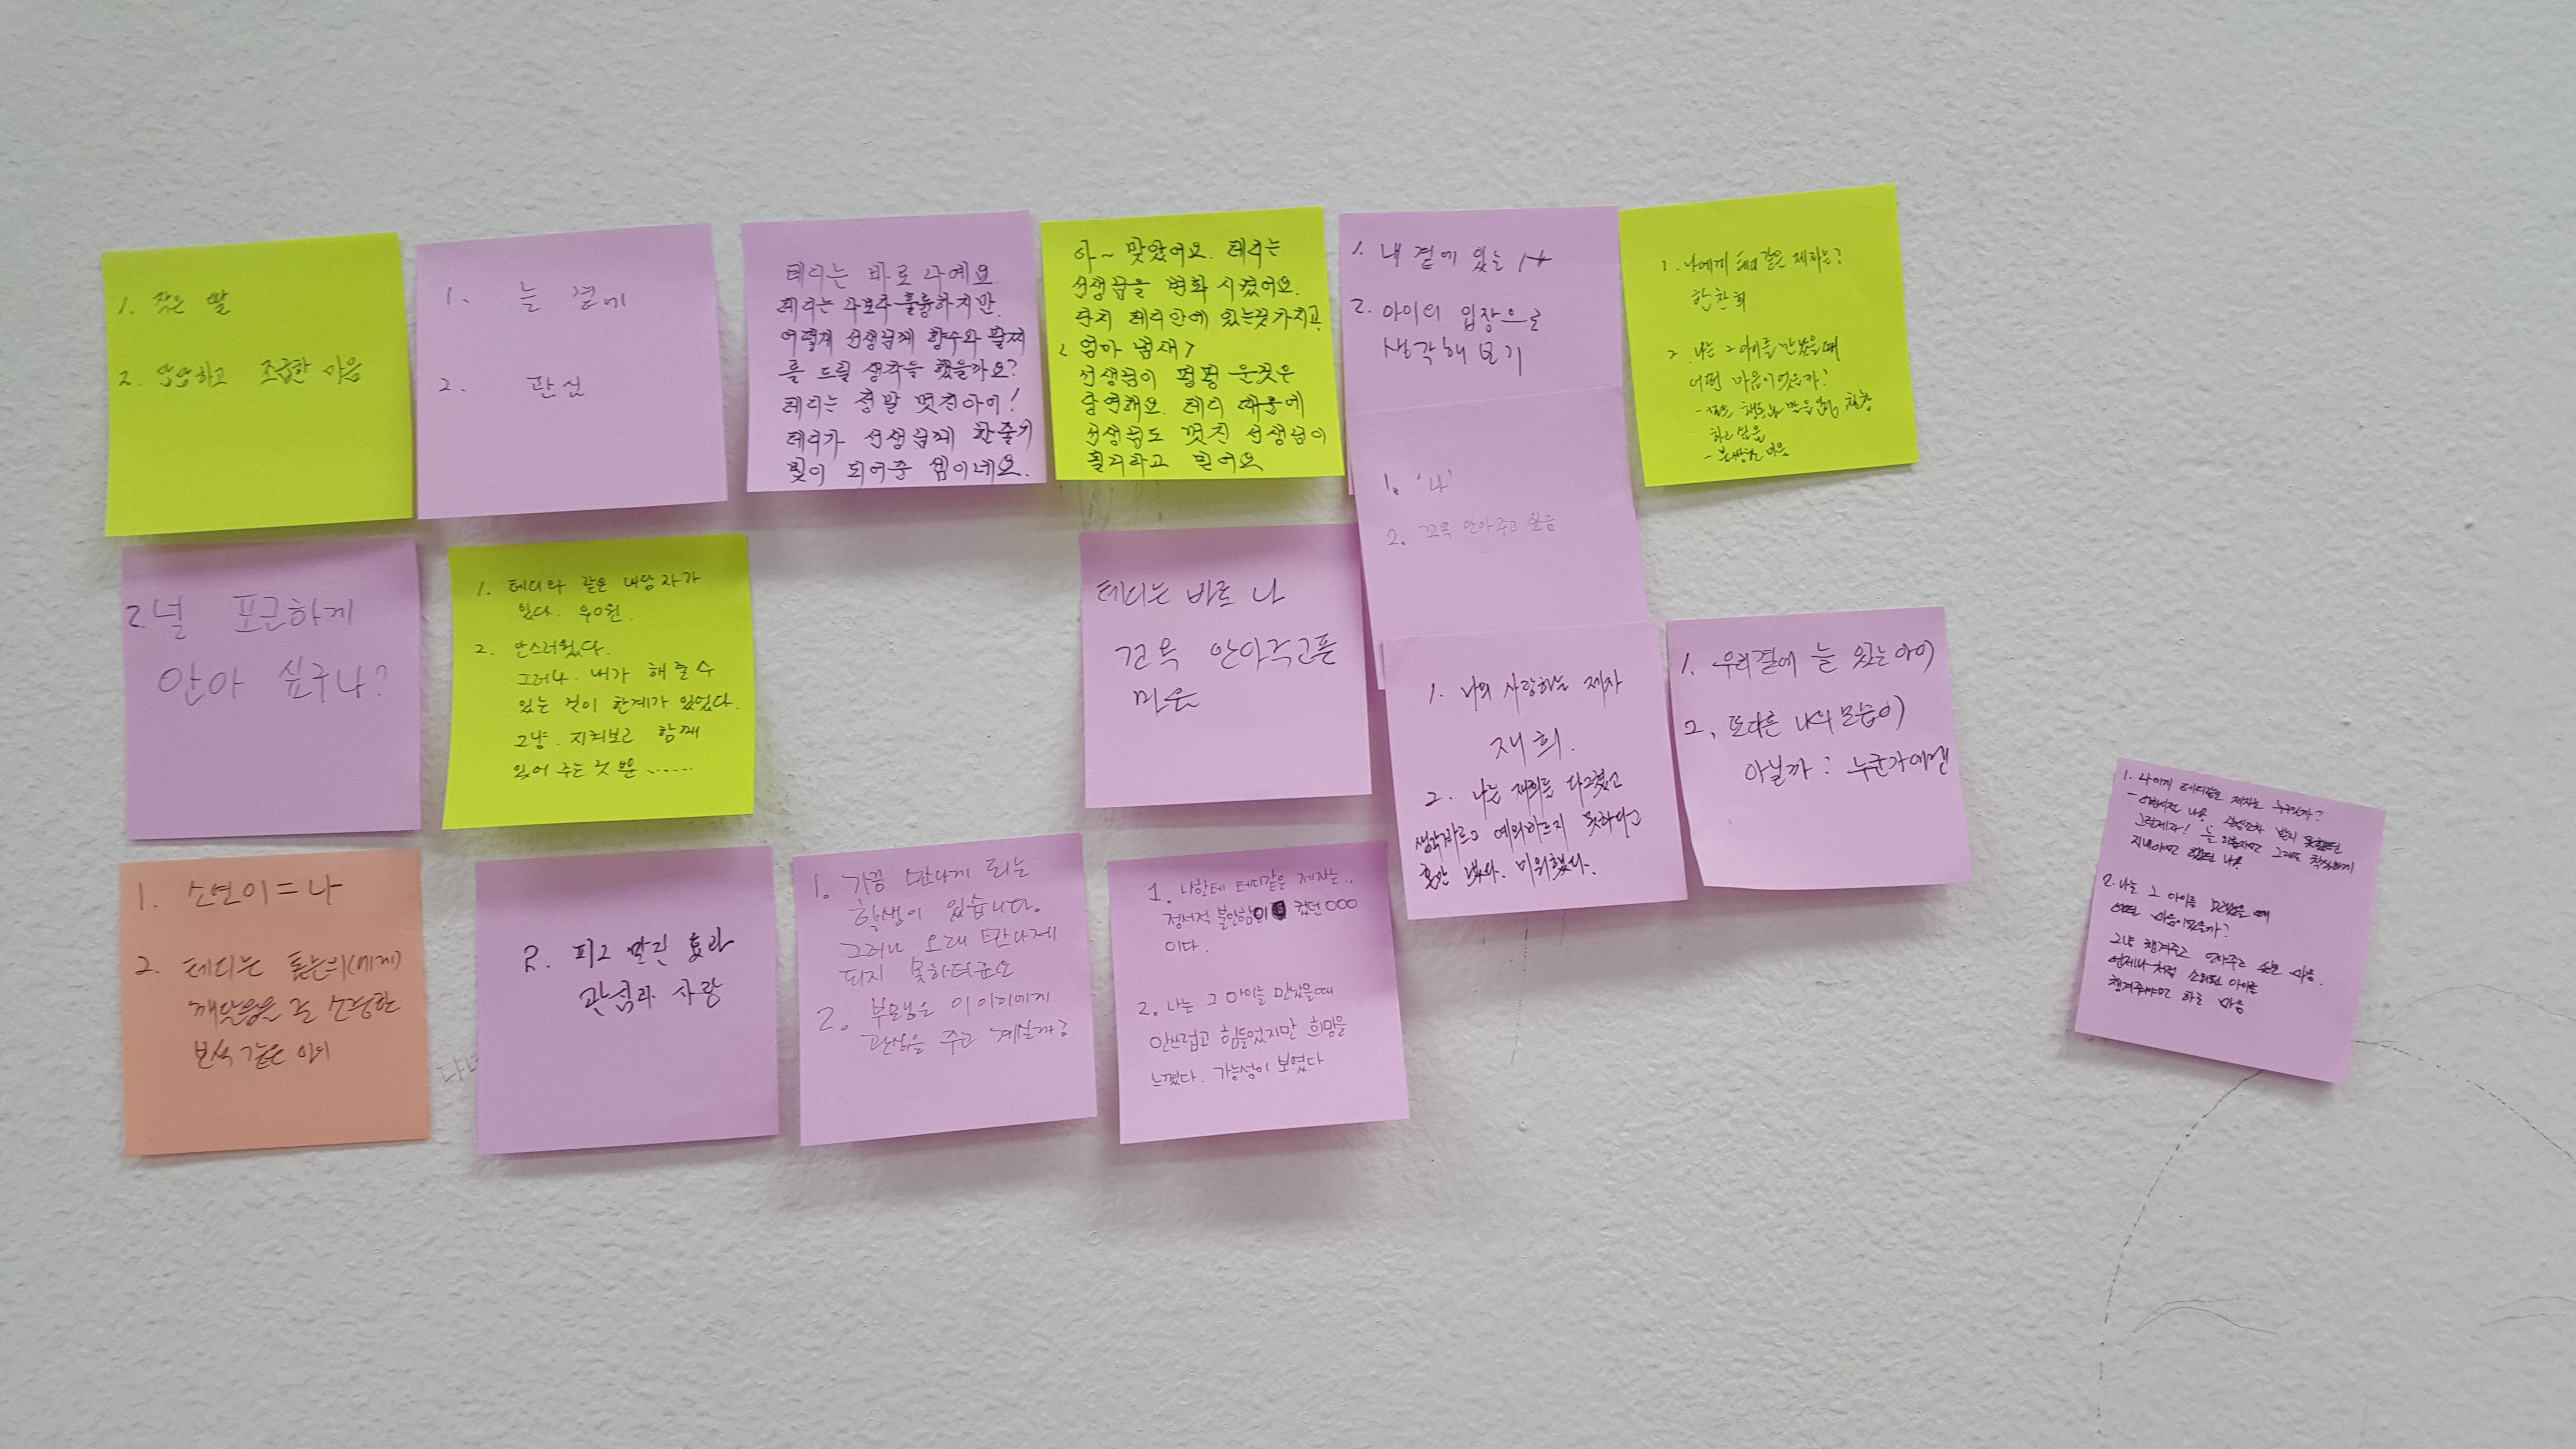 1. 작은 딸
2. 답답하고 조급한 마음
1. 늘 곁에
2. 관심
테디는 바로 나예요.
테디는 나보다 훌륭하지만.
어떻게 선생님께 향수와 팔찌
를 드릴 생각을 했을까요?
테디는 정말 멋진아이!
테디가 선생님께 한줄기
빛이 되어준 셈이네요.
아~ 맞았어요. 테디는
선생님을 변화 시켰어요.
단지 테디안에 있는것 가지고.
<엄마 냄새>
선생님이 펑펑 운것은
당연해요. 테디 때문에
선생님도 멋진 선생님이
될거라고 믿어요
1. 내 곁에 있는
2. 아이의 입장으로
생각해 보기
1. 나에게 테디 같은 제자는?
한찬희
2. 나는 그 아이를 만났을 때
어떤 마음이었을까?
하고 싶음
1. '나'
2. 꼬옥 안아주고 싶음
2. 널 포근하게
안아 싶구나?
1. 테디와 같은 내담자가
있다. 우O원.
2. 안스러웠다.
그러나. 내가 해 줄 수
있는 것이 한계가 있었다.
그냥. 지켜보고 함께
있어 주는 것 뿐......
테디는 바로 나
꼬옥 안아주고픈
마음
1. 나의 사랑하는 제자
재희.
2. 나는 재희를 다그쳤고
생각바르고 예의바르지 못하다고
혼만 냈다. 미워했다.
1. 우리곁에 늘 있는 아이
2. 또다른 나의 모습이
아닐까? 누군가에겐
1. 소연이=나
2. 테디는
깨달음을 준 소중한
보석 같은 아이
2. 피그 말리온 효과
관심과 사랑
1. 가끔 만나게 되는
학생이 있습니다.
그러나 오래 만나게
되지 못하더군요
2. 부모님은 이 아이에게
관심을 주고 계실까?
1. 나한테 테디같은 제자는..
정서적 불안함이 컸던 OOO
이다.
2. 나는 그 아이를 만났을때
안쓰럽고 힘들었지만 희망을
느꼈다. 가능성이 보였다
1. 나에게 테디같은 제자는 누구일까?
2. 나는 그 아이를 만났을 때
어떤 마음이었을까?
그냥 챙겨주고 안아주고 싶은 마음.
언제나처럼 소외된 아이를
챙겨줘야만 하는 마음